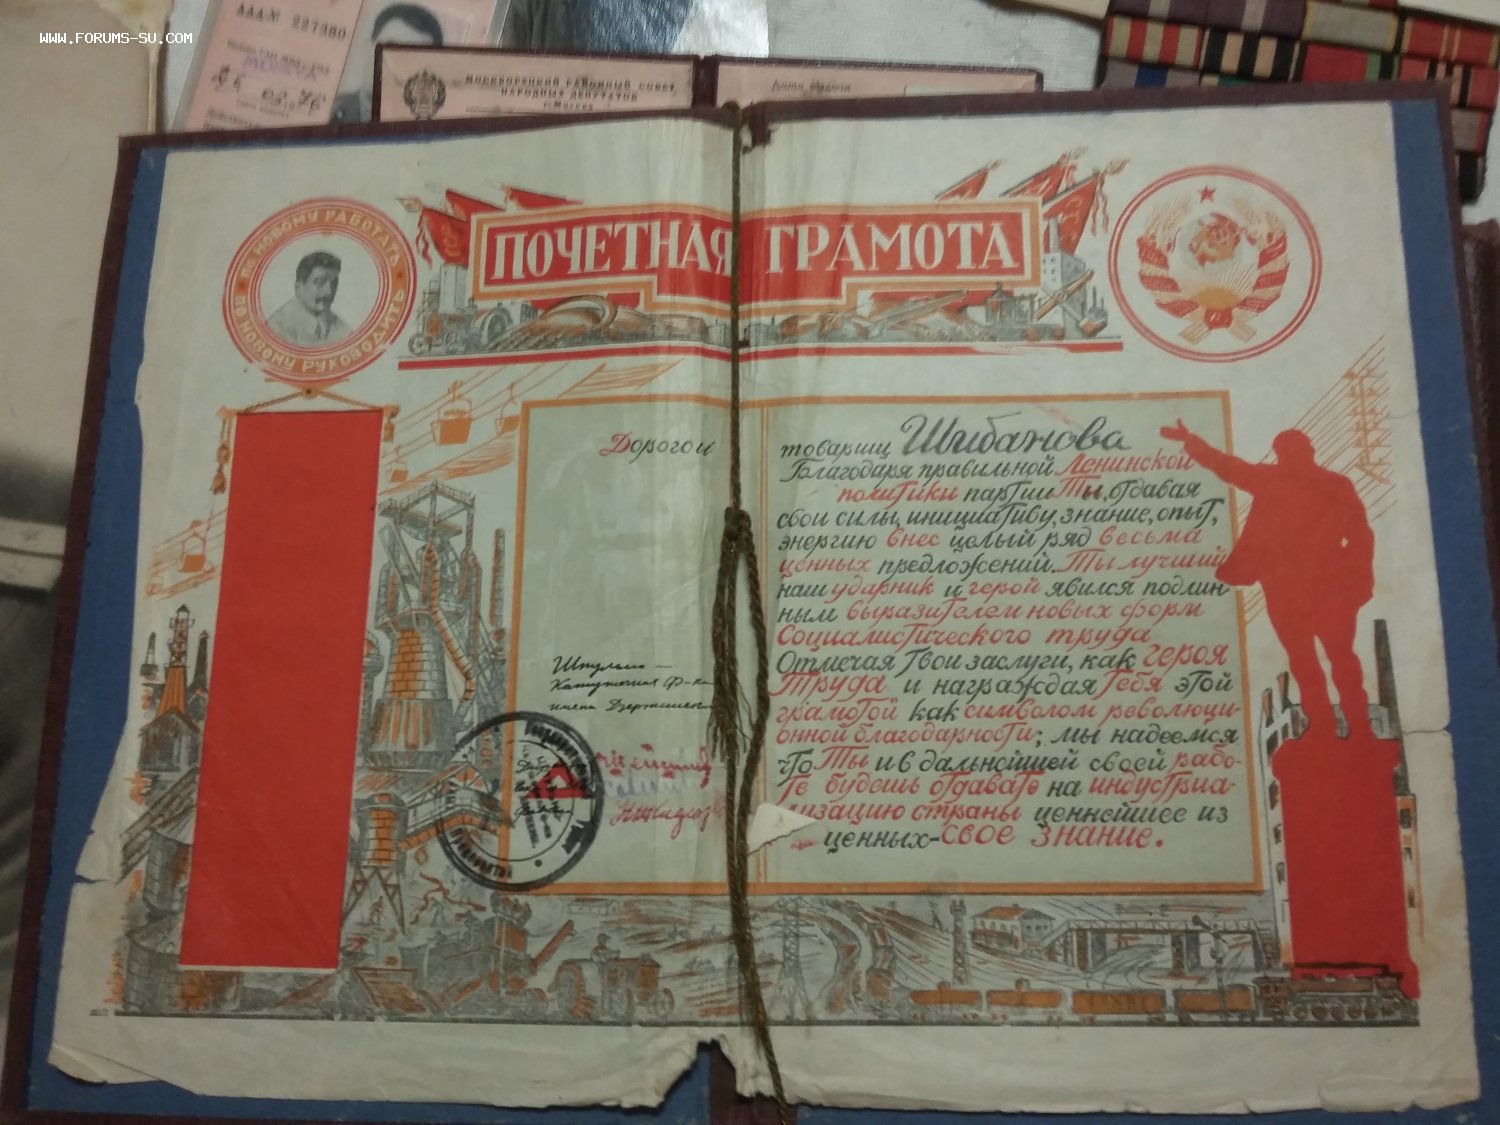 WWW.FORUMS-SU.COM
ААА.№ 227380
МОСКВА
26 03 1976
МОСКВОРЕЦКИЙ РАЙОННЫЙ СОВЕТ
НАРОДНЫХ ДЕПУТАТОВ
г. Москва
ПО НОВОМУ РАБОТАТЬ
ПО НОВОМУ РУКОВОДИТЬ
ПОЧЕТНАЯ ГРАМОТА
Дорогой товарищ Шибанова
Благодаря правильной Ленинской
политики партии Ты, отдавая
свои силы, инициативу, знание, опыт,
энергию внес целый ряд весьма
ценных предложений. Ты лучший
наш ударник и герой явился подлин-
ным выразителем новых форм
Социалистического труда
Отмечая Твои заслуги, как героя
Труда и награждая Тебя этой
грамотой как символом революци-
онной благодарности; мы надеемся
что Ты и в дальнейшей своей рабо-
те будешь отдавать на индустриа-
лизацию страны ценнейшее из
ценных-свое знание.
Шпульно-
Катушечная Ф-ка
имени